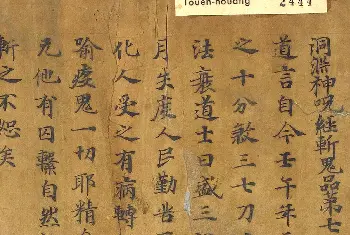 Touen-houang 2444
洞淵神呪經斬鬼品第七
道言自今壬午年
之十分煞三七刀
法衰道士日盛三
月失度人民勤
化人受之有病轉
喻疫鬼一切耶精
无他有囚繫自然
斬之不恕矣